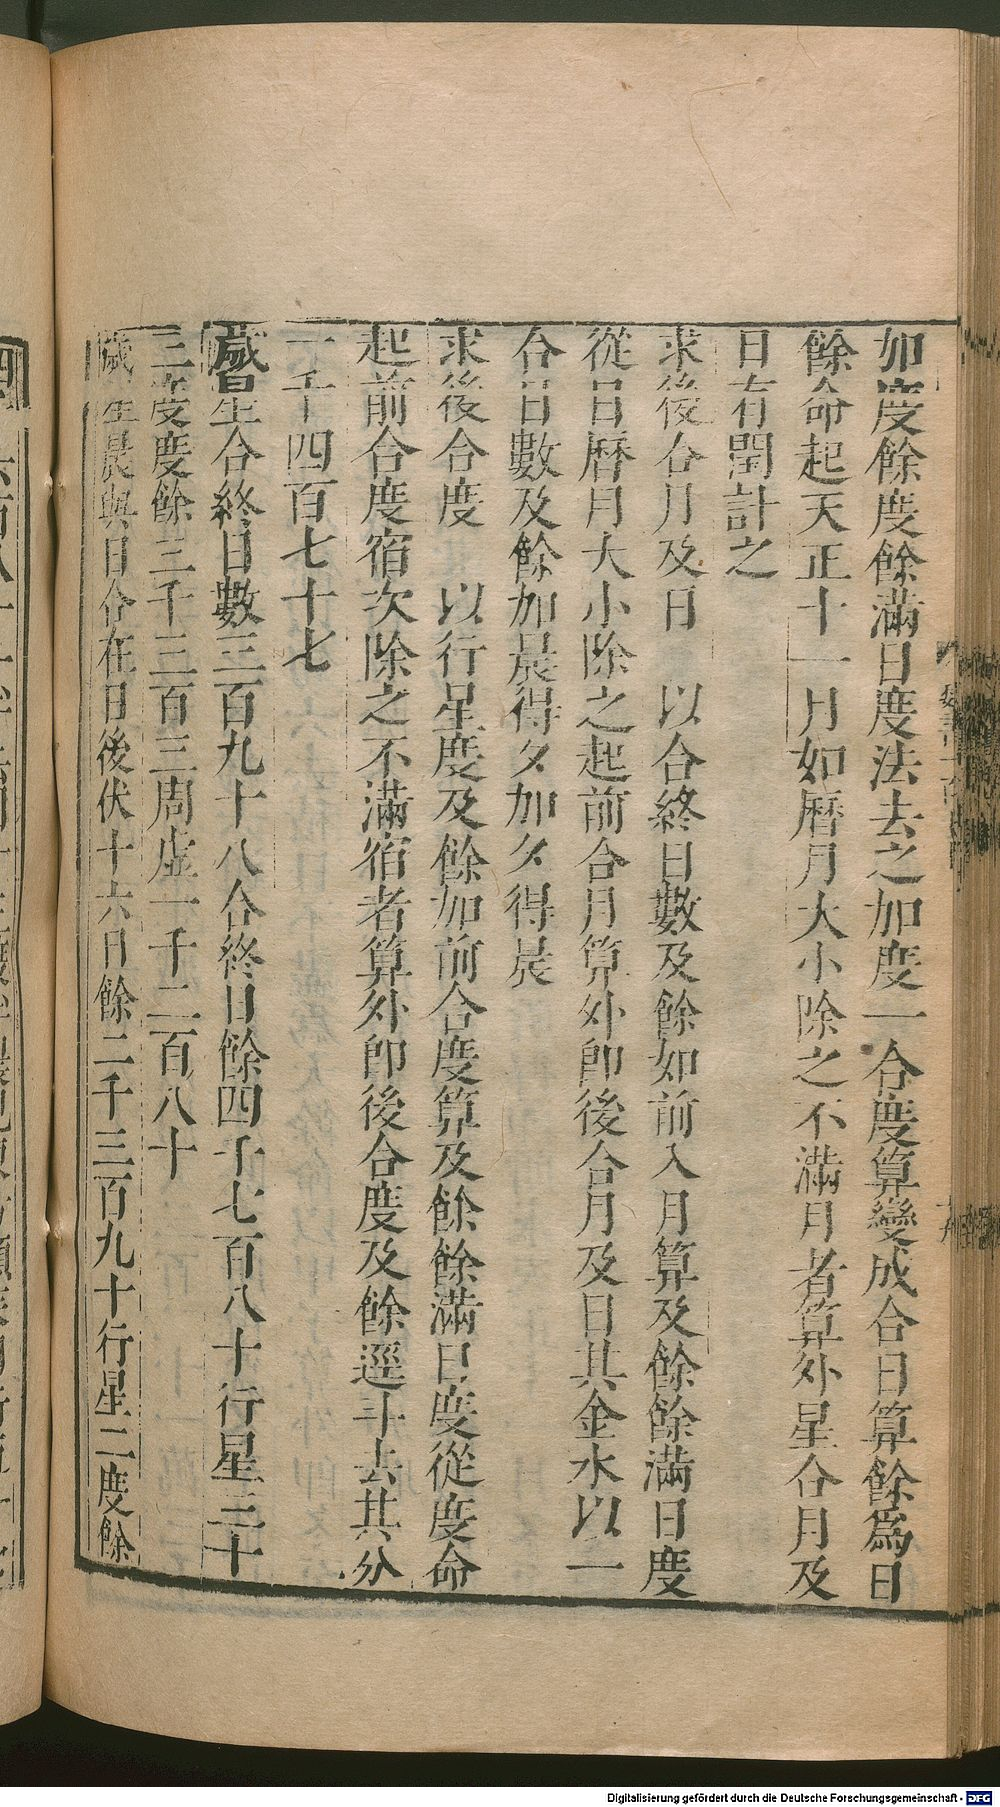 如度餘度餘滿日度法去之加度一合度算變成合日算餘為日
餘命起天正十一月如曆月大小除之不滿月者算外星合月及
日有閏計之
求後合月及日　以合終日數及餘如前入月算及餘餘滿日度
從日曆月大小除之起前合月算外即後合月及日其金水以一
合日數及餘加晨得夕加夕得晨
求後合度　以行星度及餘加前合度算及餘餘滿日度從度命
起前合度宿次除之不滿宿者算外即後合度及餘逕斗去其分
一千四百七十七
歲星合終日數三百九十八合終日餘四千七百八十行星三十
三度度餘三千三百三周虛一千二百八十
歲星晨與日合在日後伏十六日餘二千三百九十行星二度餘
Digitalisierung gefördert durch die Deutsche Forschungsgemeinschaft - DFG